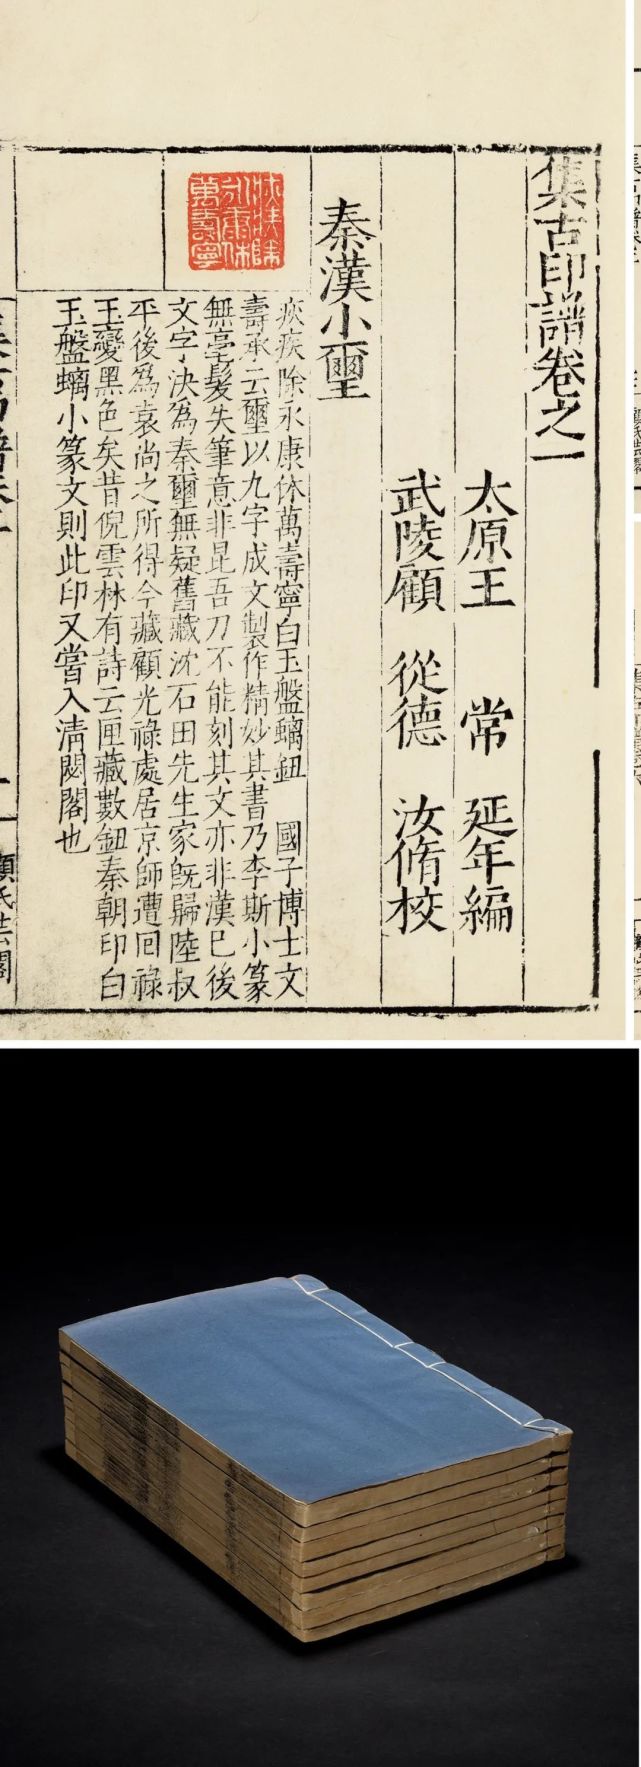 集古印譜卷之一
太原王 常 延年編
武陵顧 從德 汝脩校
秦漢小璽
疢疾除永康休萬壽寧白玉盤螭鈕 國子博士文
壽承云璽以九字成文製作精妙其書乃李斯小篆
無毫髮失筆意非昆吾刀不能刻其文亦非漢已後
文字決爲秦璽無疑舊藏沈石田先生家旣歸陸叔
平後爲袁尚之所得今藏顧光祿處居京師遭回祿
玉變黑色矣昔倪雲林有詩云匣藏數鈕秦朝印白
玉盤螭小篆文則此印又嘗入清閟閣也
疢疾除
永康休
萬壽寧
顧氏芸閣